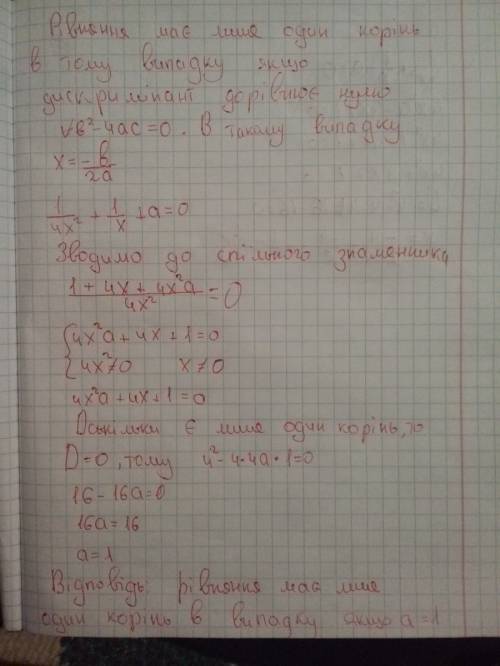 Рівняння має лише один корінь
в тому випадку якщо
дискримінант дорівнює нулю
√b²-4ac=0. В такому випадку
x=-b/2a
1/4x² + 1/x + a=0
Зводимо до спільного знаменника
1+4x+4x²a/4x²=0
{4x²a+4x+1=0
{4x²≠0 x≠0
4x²a+4x+1=0
Оскільки є лише один корінь, то
D=0, тому 4²-4·4a·1=0
16-16a=0
16a=16
a=1
Відповідь: рівняння має лише
один корінь в випадку якщо a=1